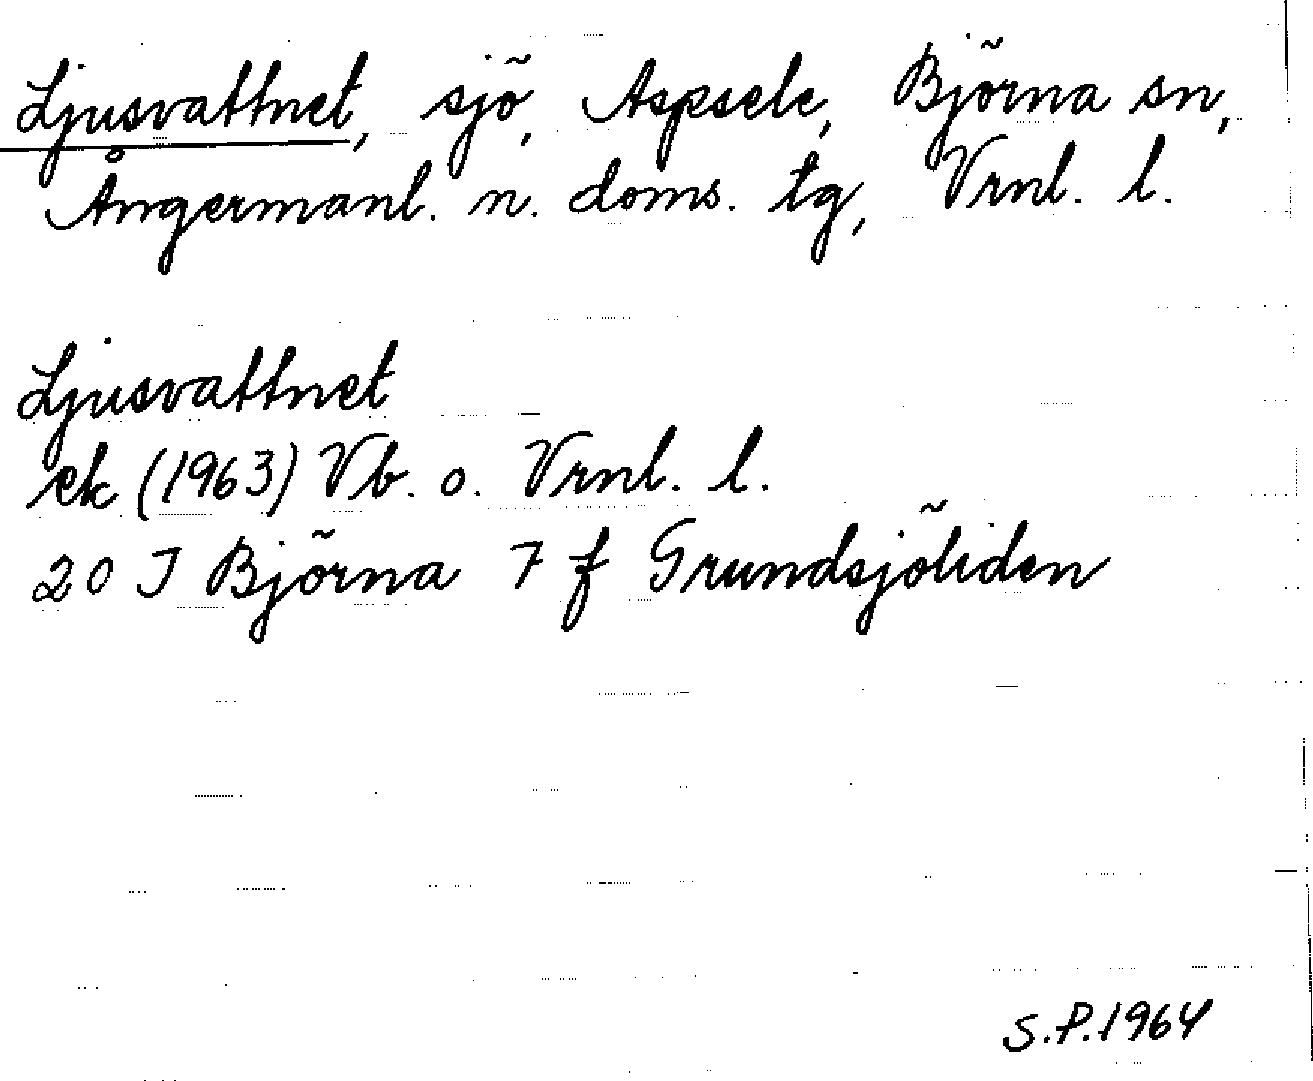 Ljusvattnet, sjö, Aspsele, Björna sn,
Ångermanl. n. doms. tg, Vrnl. l.
Ljusvattnet
ek (1963) Vb. o. Vrnl. l.
20 J Björna 7 f Grundsjöliden
S.P. 1964